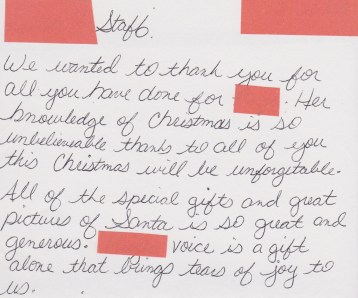 Staff.
We wanted to thank you for
all you have done for . Her
knowledge of Christmas is so
unbelieveable thanks to all of you
this Christmas will be unforgetable.
All of the special gifts and great
pictures of Santa is so great and
generous. voice is a gift
alone that brings tears of joy to
us.